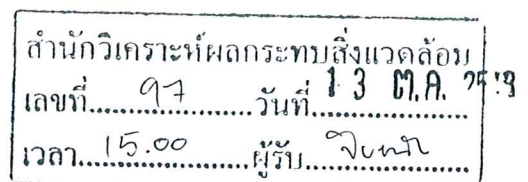 สำนักวิเคราะห์ผลกระทบสิ่งแวดล้อม
เลขที่ 97 วันที่ 13 ต.ค.
เวลา 15.00 ผู้รับ